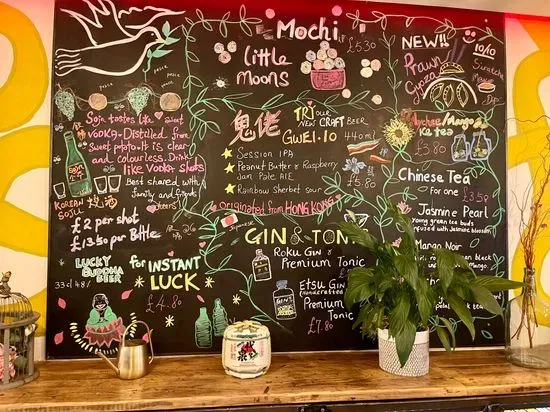 peace
peace
peace
Soju tastes like sweet
vodka. Distilled from
Sweet potato. It is clear
and colourless. Drink
like vodka shots
Best shared with
family and friends
cheers
KOREAN
SOJU
£2 per shot
£13.50 per Bottle
LUCKY
BUDDHA
BEER
33cl
4.8%
for INSTANT
LUCK
£4.80
Mochi
Little
Moons
£5.30
鬼佬
TRY our
NEW CRAFT BEER
GWEI.IO
440ml
Session IPA
Peanut Butter & Raspberry
Jam Pale ALE
Rainbow Sherbet sour
£5.80
originated from HONG KONG
Japanese
GIN & TONIC
ROKU GIN &
Premium Tonic
ETSU GIN
Handcrafted
Premium
Tonic
£7.80
NEW!!
10/10
Prawn
Gyoza
Sriracha
Mayo
Dip
Lychee/Mango
Ice tea
£3.80
Chinese Tea
for one
£3.50
Jasmine Pearl
young green tea buds
infused with Jasmine blossom
Mango Noir
Mango